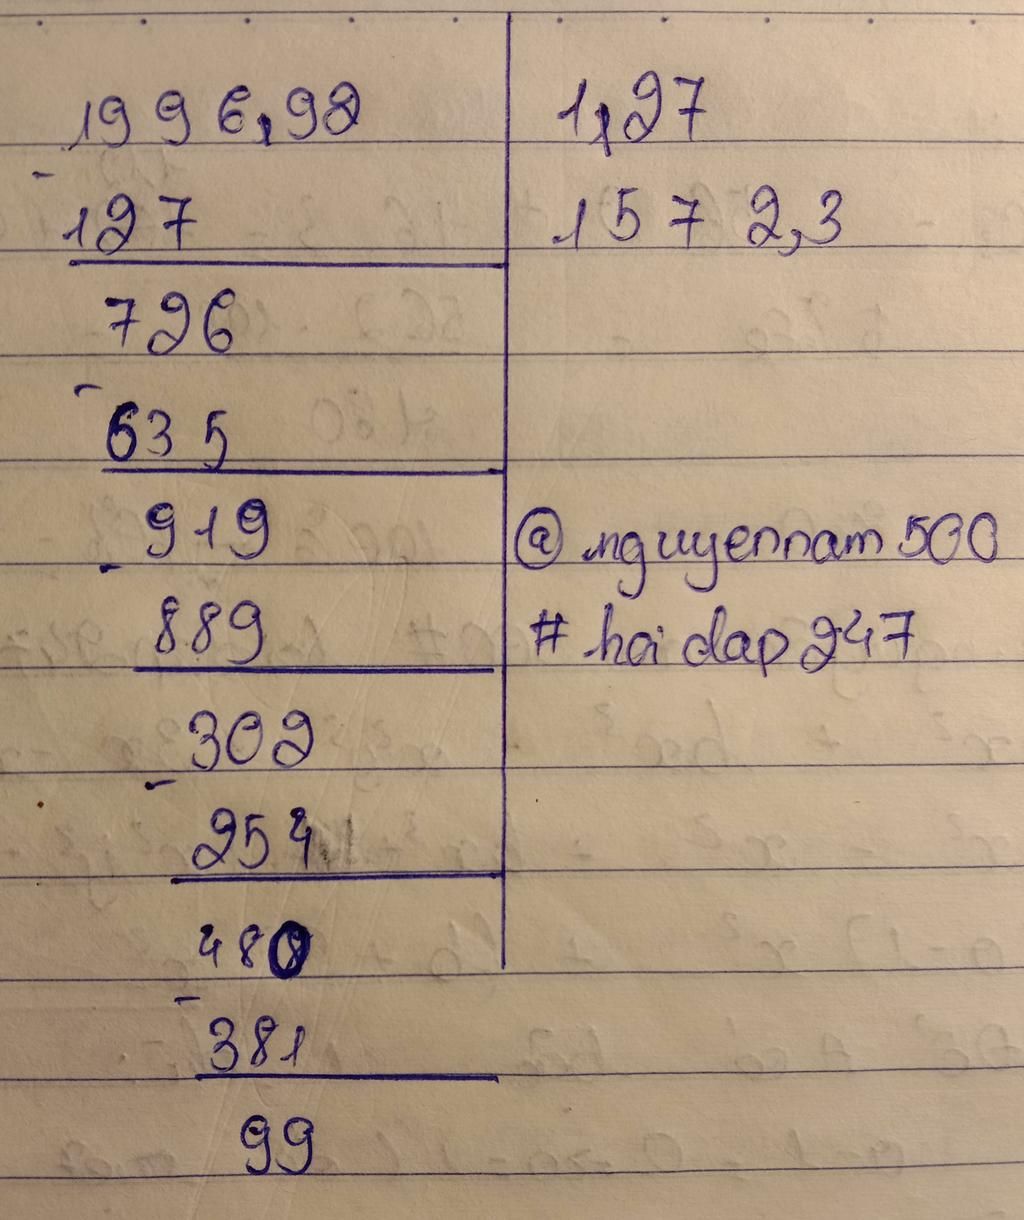 1996,92 1,27
-
127 1572,3
726
-
635
919 @nguyennam500
-
889 #hoidap247
302
-
254
480
-
381
99